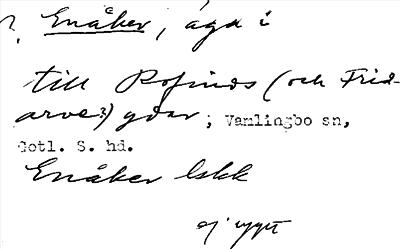 ?, Enåker, äga i
till Rofinds (och Frid-
arve?) gdar; Vamlingbo sn,
Gotl. S. hd.
Enåker lskk
ej uppt